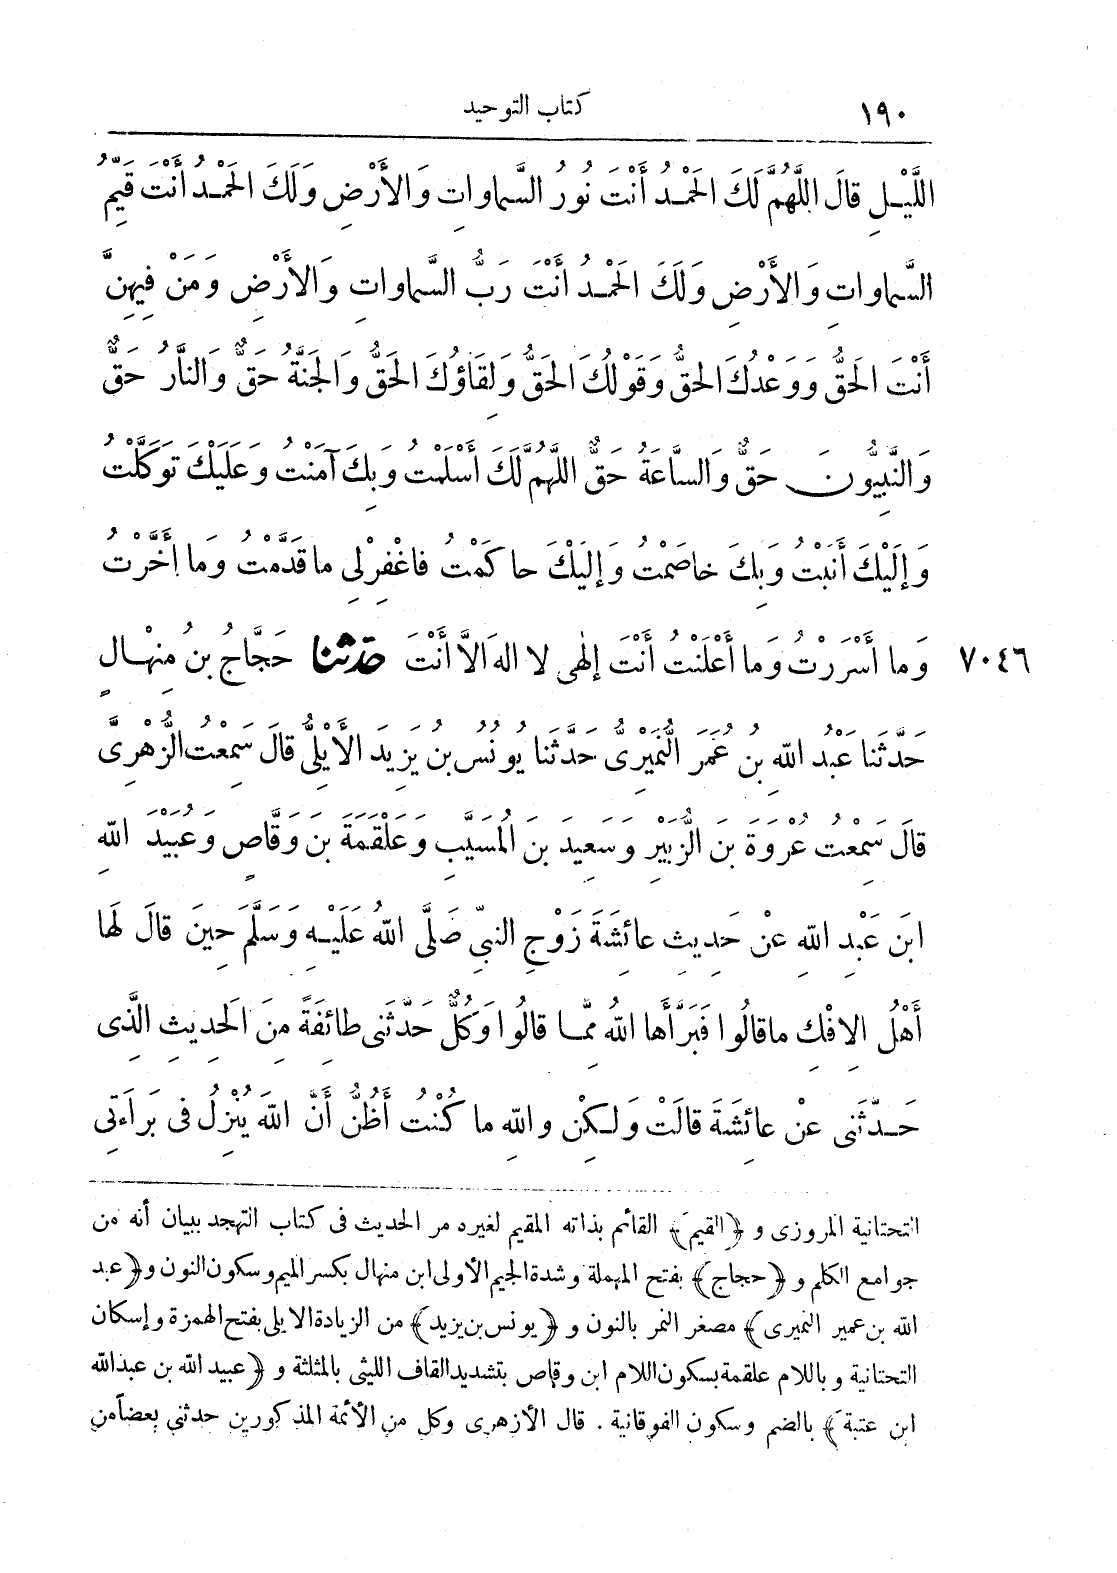 ١٩٠
كتاب التوحيد
اللَّيْلِ قَالَ اللَّهُمَّ لَكَ الحَمْدُ أَنْتَ نُورُ السَّمَاوَاتِ وَالأَرْضِ وَلَكَ الحَمْدُ أَنْتَ قَيِّمُ
السَّمَاوَاتِ وَالأَرْضِ وَلَكَ الحَمْدُ أَنْتَ رَبُّ السَّمَاوَاتِ وَالأَرْضِ وَمَنْ فِيهِنَّ
أَنْتَ الحَقُّ وَوَعْدُكَ الحَقُّ وَقَوْلُكَ الحَقُّ وَلِقَاؤُكَ الحَقُّ وَالجَنَّةُ حَقٌّ وَالنَّارُ حَقٌّ
وَالنَّبِيُّونَ حَقٌّ وَالسَّاعَةُ حَقٌّ اللَّهُمَّ لَكَ أَسْلَمْتُ وَبِكَ آمَنْتُ وَعَلَيْكَ تَوَكَّلْتُ
وَإِلَيْكَ أَنَبْتُ وَبِكَ خَاصَمْتُ وَإِلَيْكَ حَاكَمْتُ فَاغْفِرْ لِى مَا قَدَّمْتُ وَمَا أَخَّرْتُ
وَمَا أَسْرَرْتُ وَمَا أَعْلَنْتُ أَنْتَ إِلٰهِى لا اله الَّا أَنْتَ حدثنا حَجَّاجُ بنُ مِنْهَالٍ ٧٠٤٦
حَدَّثَنَا عَبْدُ اللهِ بنُ عُمَرَ النُّمَيْرِىُّ حَدَّثَنَا يُونُسُ بنُ يَزِيدَ الأَيْلِىُّ قَالَ سَمِعْتُ الزُّهْرِىَّ
قَالَ سَمِعْتُ عُرْوَةَ بنَ الزُّبَيْرِ وَسَعِيدَ بنَ المُسَيَّبِ وَعَلْقَمَةَ بنَ وَقَّاصٍ وَعُبَيْدَ اللهِ
ابنَ عَبْدِ اللهِ عنْ حَدِيثِ عائِشَةَ زَوْجِ النبىِّ صَلَّى اللهُ عَلَيْهِ وَسَلَّمَ حِينَ قالَ لَهَا
أَهْلُ الافْكِ ماقالُوا فَبَرَّأَها اللهُ مِمَّا قالُوا وَكُلٌّ حَدَّثَنِى طائِفَةً مِنَ الحَدِيثِ الَّذِى
حَدَّثَنِى عنْ عائِشَةَ قالَتْ وَلكِنْ واللهِ ما كُنْتُ أَظُنُّ أَنَّ اللهَ يُنْزِلُ فى بَرَاءَتِى
التحتانية المروزى و ﴿القيم﴾ القائم بذاته المقيم لغيره مر الحديث فى كتاب التهجد ببيان أنه من
جوامع الكلم و ﴿حجاج﴾ بفتح المهملة وشدة الجيم الأولى ابن منهال بكسر الميم وسكون النون و ﴿عبد
الله بن عمير النميرى﴾ مصغر النمر بالنون و ﴿يونس بن يزيد﴾ من الزيادة الايلى بفتح الهمزة وإسكان
التحتانية وباللام علقمة بسكون اللام ابن وقاص بتشديد القاف الليثى بالمثلثة و ﴿عبيد الله بن عبد الله
ابن عتبة﴾ بالضم وسكون الفوقانية . قال الأزهرى وكل من الأئمة المذكورين حدثنى بعضاً من